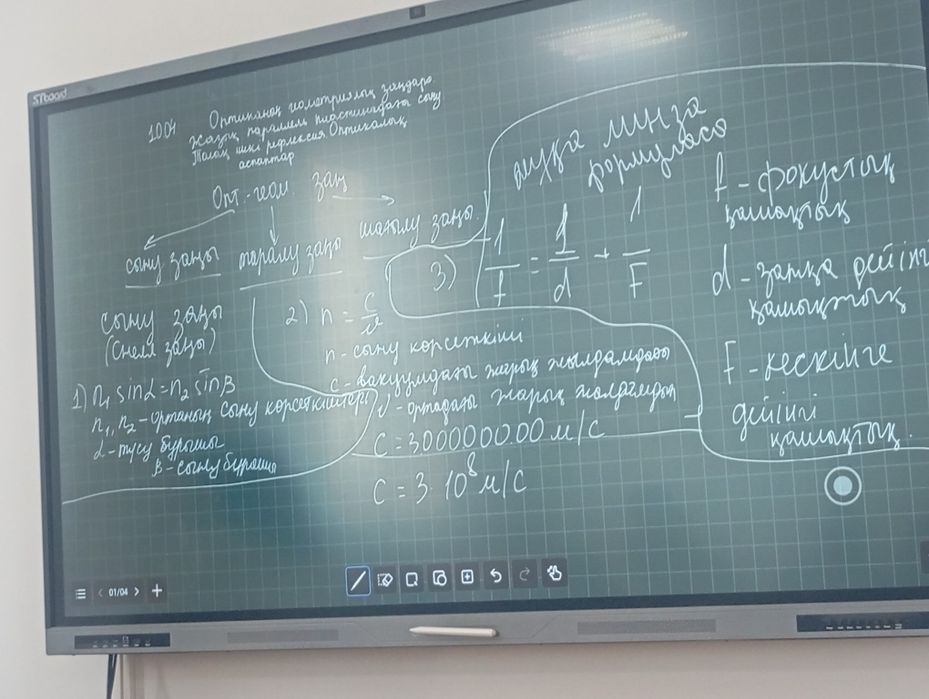 STboard
10.04 Оптиканың геометриялық заңдары.
Жазық параллель пластинкадағы сыну
Толық ішкі рефлексия Оптикалық
аспаптар
Опт. геом. заң
сыну заңы таралу заңы шағылу заңы.
Сыну заңы
(Снелл заңы)
1) n₁ sinα = n₂ sinβ
n₁, n₂ - ортаның сыну көрсеткіштері
α - түсу бұрышы
β - сыну бұрышы
2) n = c/v
n - сыну көрсеткіші
c - вакуумдағы жарық жылдамдығы
v - ортадағы жарық жылдамдығы
C = 300000000 м/с
C = 3 · 10⁸ м/с
жұқа линза
формуласы
3) 1/f = 1/d + 1/F
f - фокустық
қашықтық
d - затқа дейінгі
қашықтық
F - кескінге
дейінгі
қашықтық.
01/04